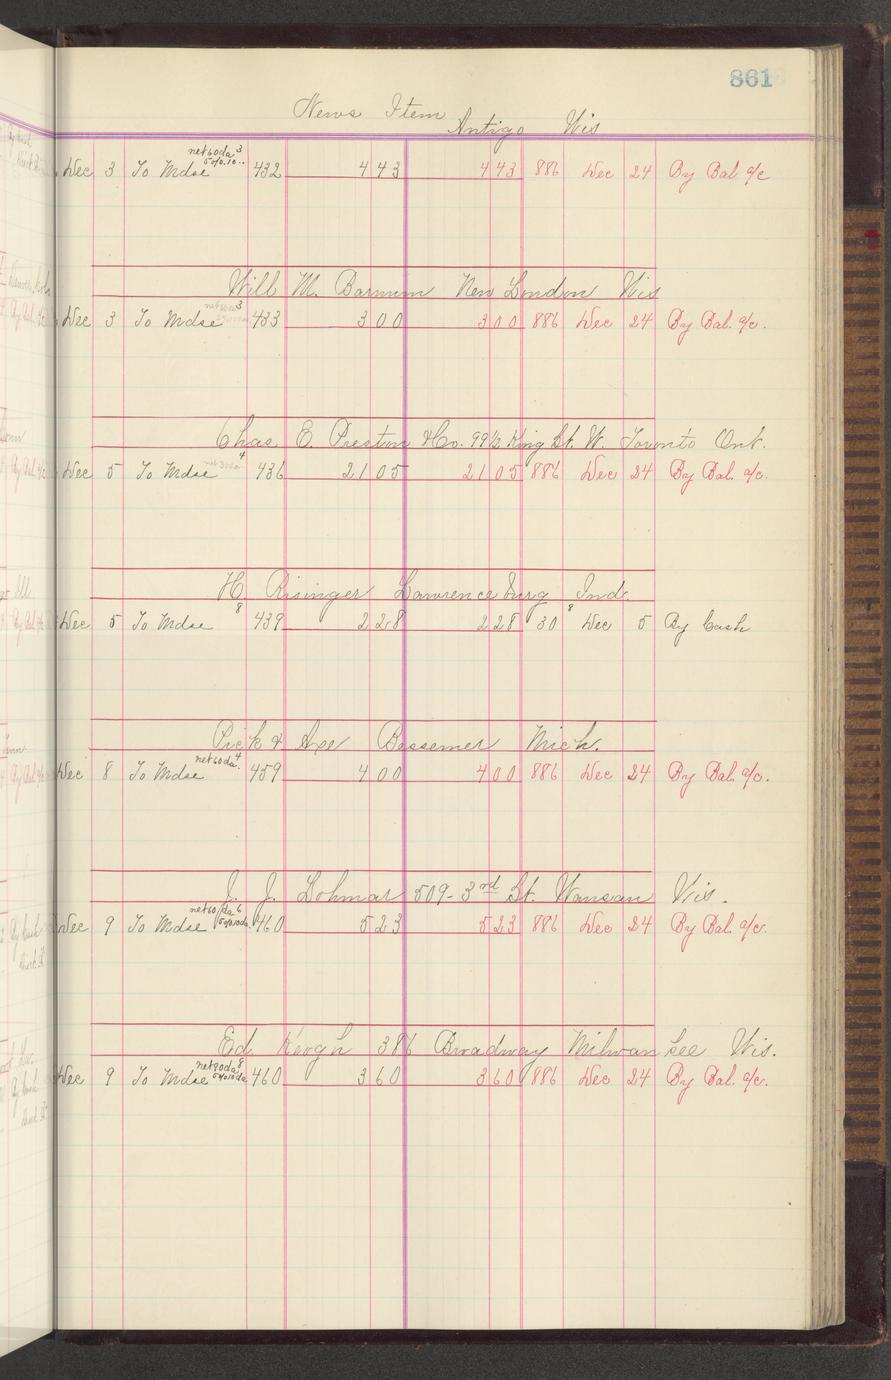 861
News Item Antigo Wis
net 60 da 3
Dec 3 To Mdse 5% 10 432 4 43 4 43 886 Dec 24 By Bal a/c
Will M. Barnum New London Wis
3
Dec 3 To Mdse 433 3 00 3 00 886 Dec 24 By Bal. a/c.
Chas E. Preston & Co. 99 1/2 King St. W. Toronto Ont.
net 30 da 4
Dec 5 To Mdse 436 21 05 21 05 886 Dec 24 By Bal. a/c.
H Risinger Lawrenceburg Ind.
8 8
Dec 5 To Mdse 439 2 28 2 28 30 Dec 5 By Cash
Pick & Axe Bessemer Mich.
net 60 da 4
Dec 8 To Mdse 459 4 00 4 00 886 Dec 24 By Bal. a/c.
J. J. Lohmar 509-3rd St. Wausau Wis.
net 60 da 6
Dec 9 To Mdse 5% 10 da 460 5 23 5 23 886 Dec 24 By Bal. a/c.
Ed. Keogh 386 Broadway Milwaukee Wis.
net 90 da 8
Dec 9 To Mdse 5% 10 da 460 3 60 3 60 886 Dec 24 By Bal. a/c.